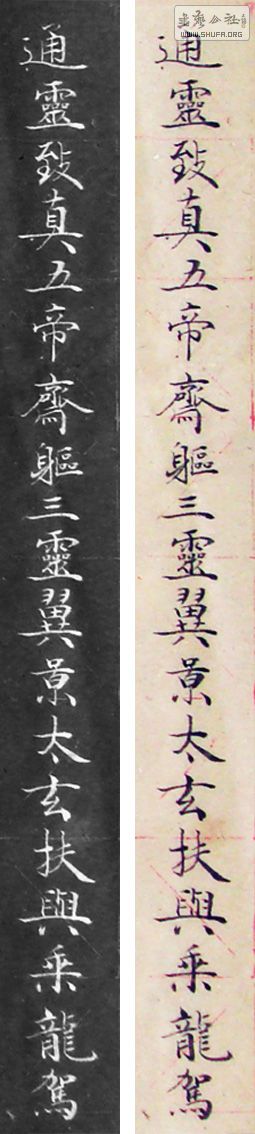 書法公社
WWW.SHUFA.ORG
通靈致真五帝齊軀三靈翼景太玄扶與乘龍駕
通靈致真五帝齊軀三靈翼景太玄扶與乘龍駕